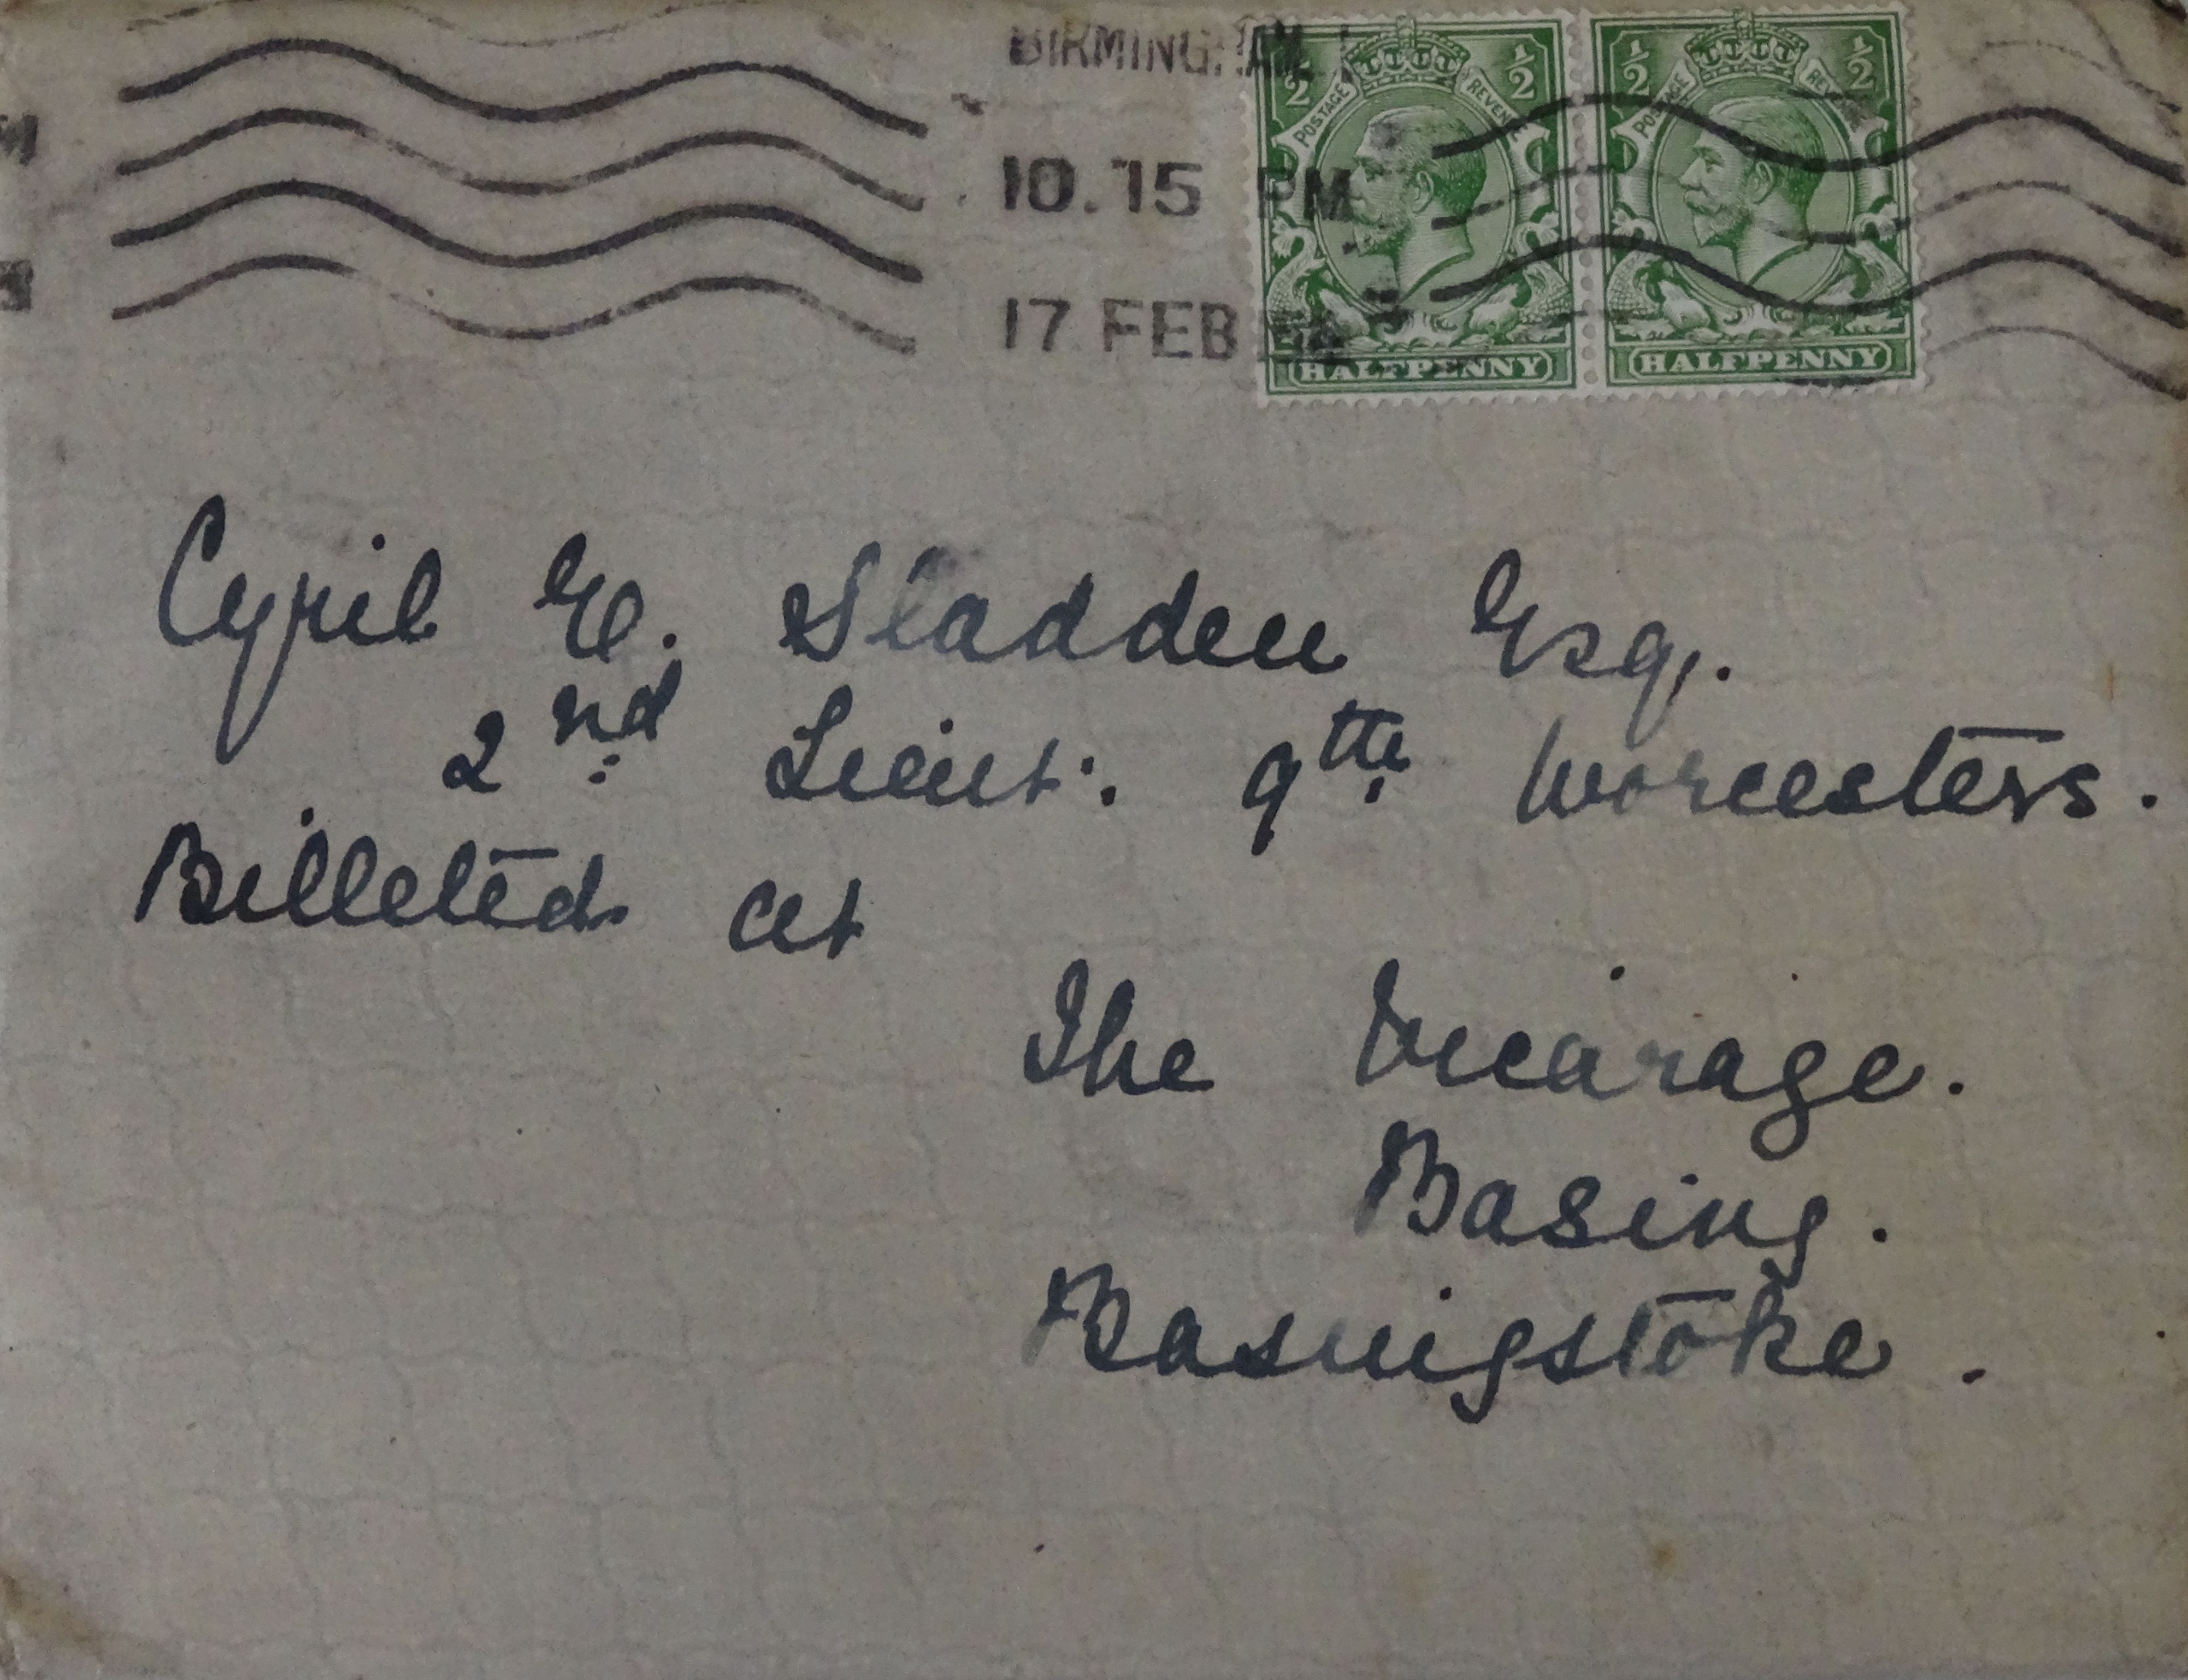 BIRMINGHAM
10.15 PM
17 FEB
½ POSTAGE REVENUE ½
HALFPENNY
½ POSTAGE REVENUE ½
HALFPENNY
Cyril E. Sladden Esq.
2nd Lieut: 9th Worcesters.
Billeted at
The Vicarage.
Basing.
Basingstoke.